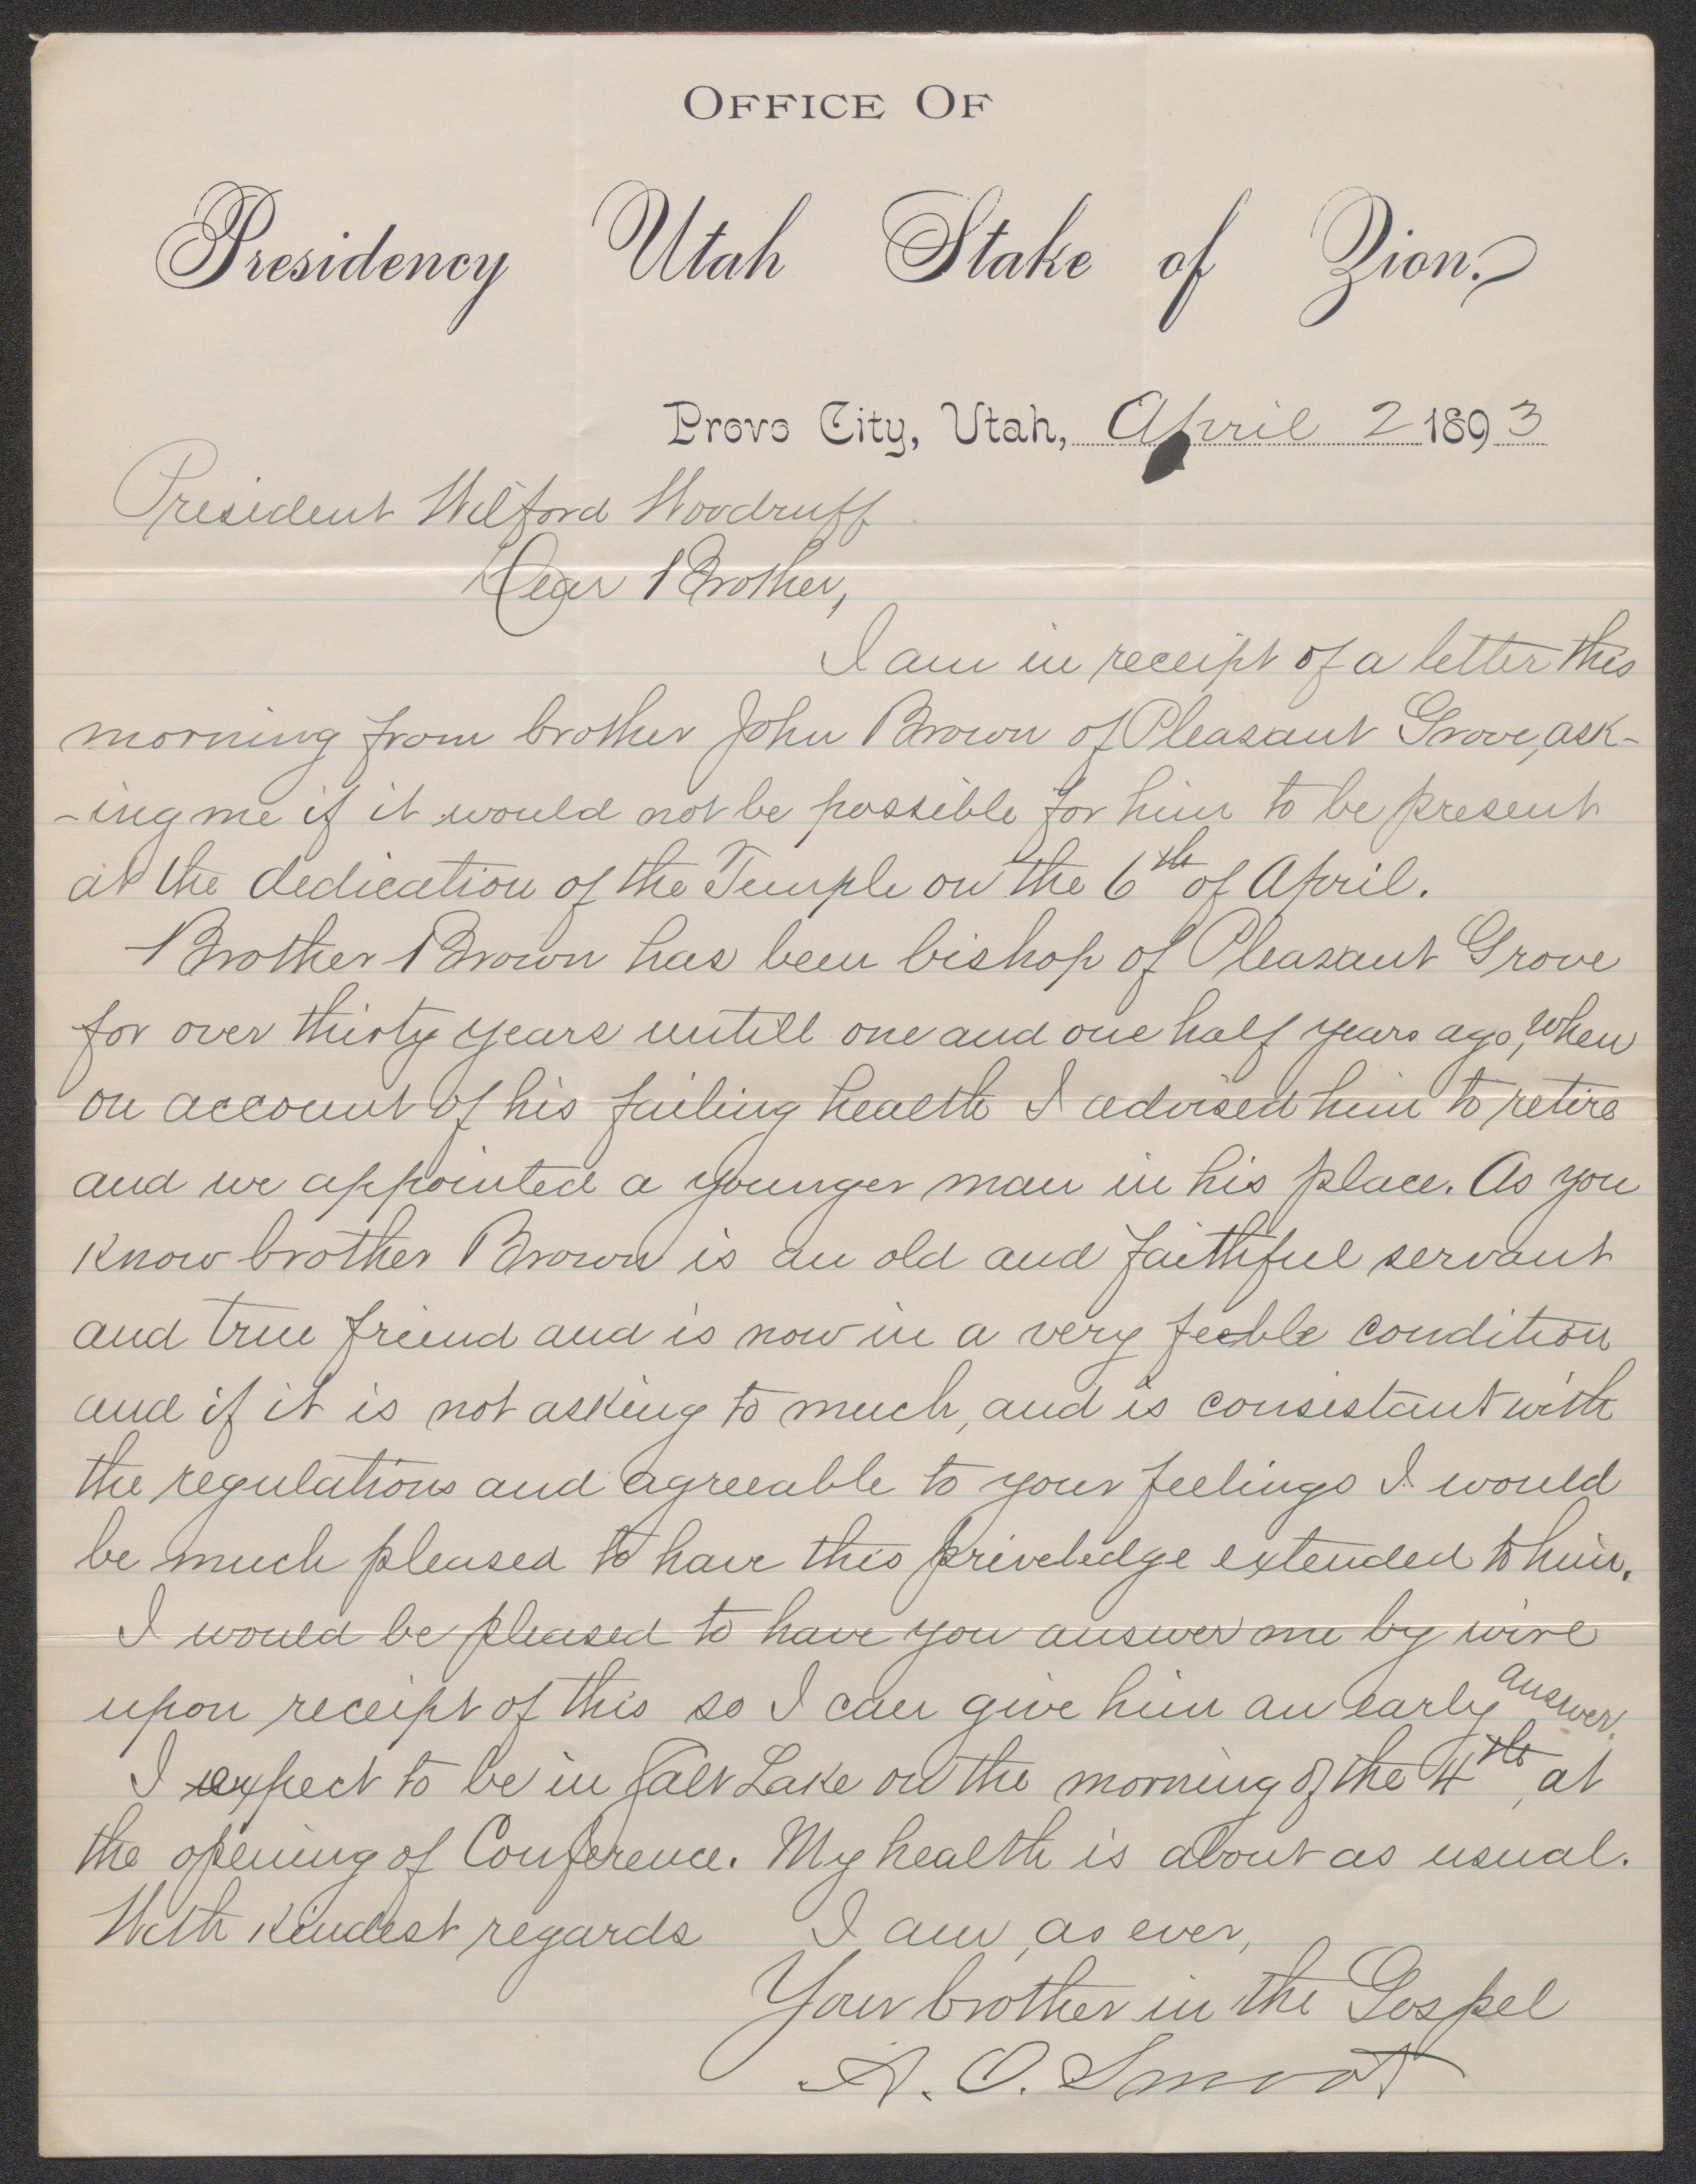 OFFICE OF
Presidency Utah Stake of Zion.
Provo City, Utah, April 2 1893
President Wilford Woodruff
Dear Brother,
I am in receipt of a letter this
morning from brother John Brown of Pleasant Grove, ask-
-ing me if it would not be possible for him to be present
at the dedication of the Temple on the 6th of April.
Brother Brown has been bishop of Pleasant Grove
for over thirty years untill one and one half years ago, when
on account of his failing health I advised him to retire
and we appointed a younger man in his place. As you
know brother Brown is an old and faithful servant
and true friend and is now in a very feeble condition
and if it is not asking to much, and is consistant with
the regulations and agreeable to your feelings I would
be much pleased to have this priveledge extended to him.
I would be pleased to have you answer me by wire
upon receipt of this so I can give him an early answer.
I expect to be in Salt Lake on the morning of the 4th, at
the opening of Conference. My health is about as usual.
With kindest regards I am, as ever,
Your brother in the Gospel
A. O. Smoot